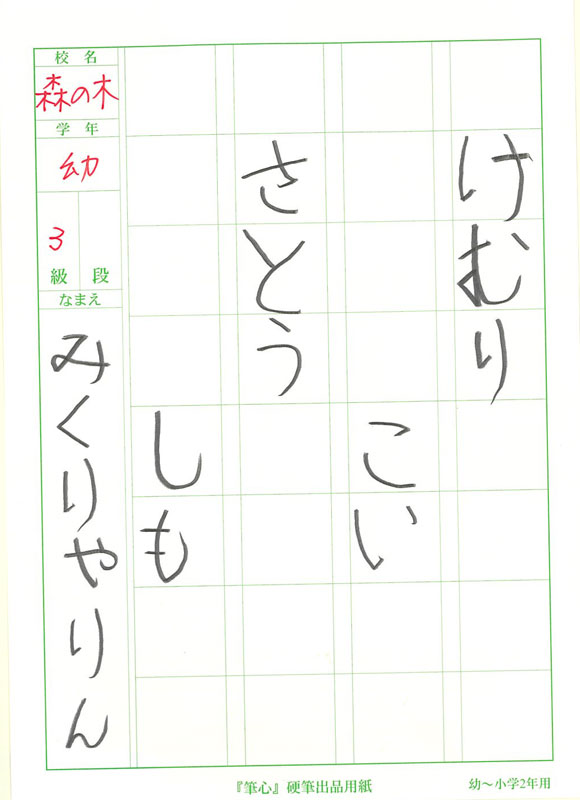 けむり
こい
さとう
しも
校名
森の木
学年
幼
3
級 段
なまえ
みくりやりん
『筆心』硬筆出品用紙
幼～小学2年用